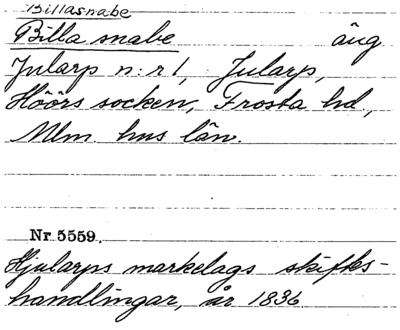 Billasnabe
Billa snabe äng
Jularp n:r 1, Jularp,
Höörs socken, Frosta hd.,
Mlm. hus län.
Nr 5559.
Hjularps markelags skifks-
handlingar, år 1836